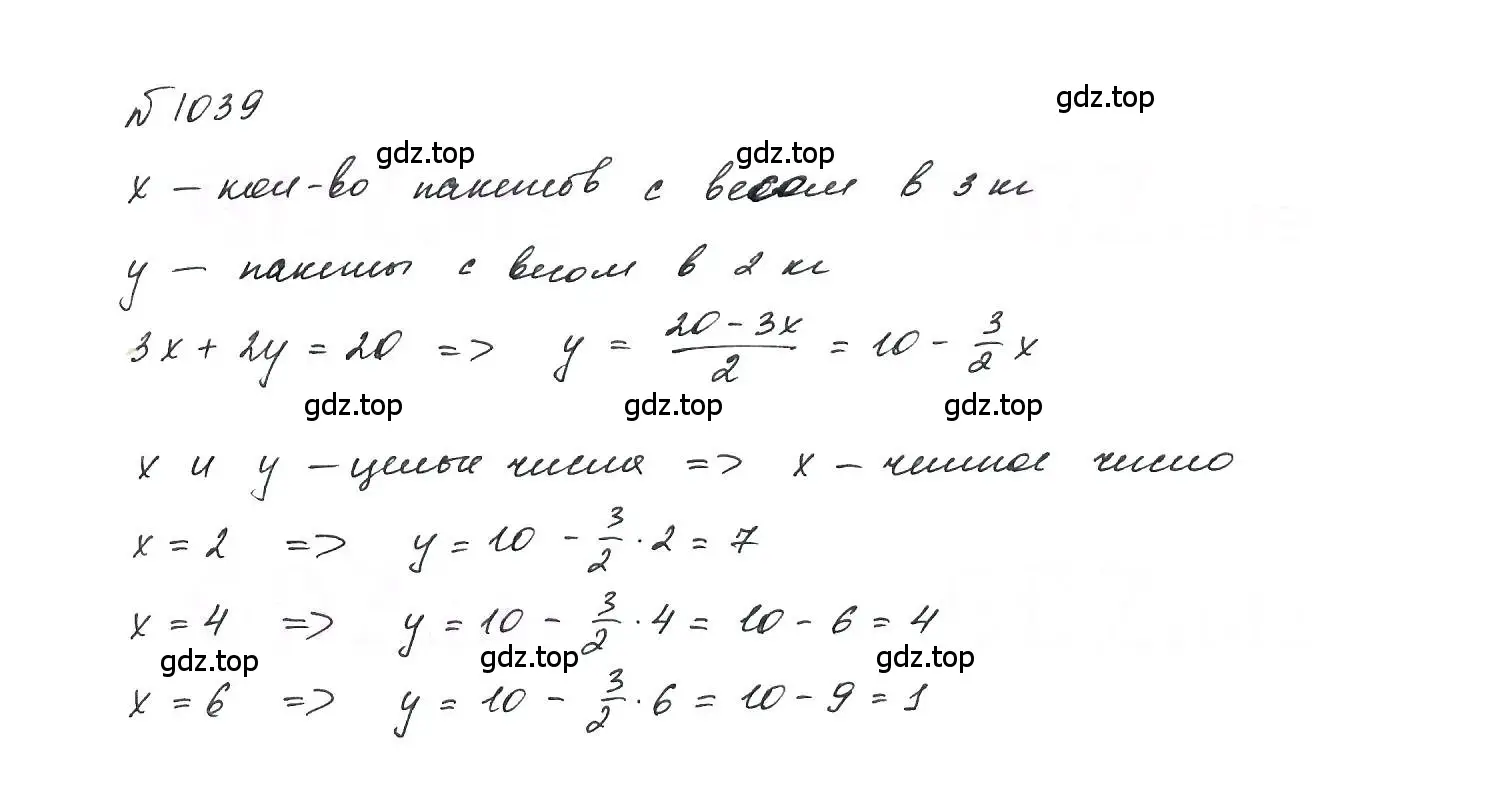 №1039
gdz.top
gdz.top gdz.top
x – кол-во пакетов с весом в 3 кг
y – пакеты с весом в 2 кг
3x + 2y = 20 => y = \frac{20 - 3x}{2} = 10 - \frac{3}{2} x
gdz.top gdz.top gdz.top
x и y – целые числа => x – четное число
x = 2 => y = 10 - \frac{3}{2} · 2 = 7
x = 4 => y = 10 - \frac{3}{2} · 4 = 10 - 6 = 4
gdz.top gdz.top gdz.top
x = 6 => y = 10 - \frac{3}{2} · 6 = 10 - 9 = 1